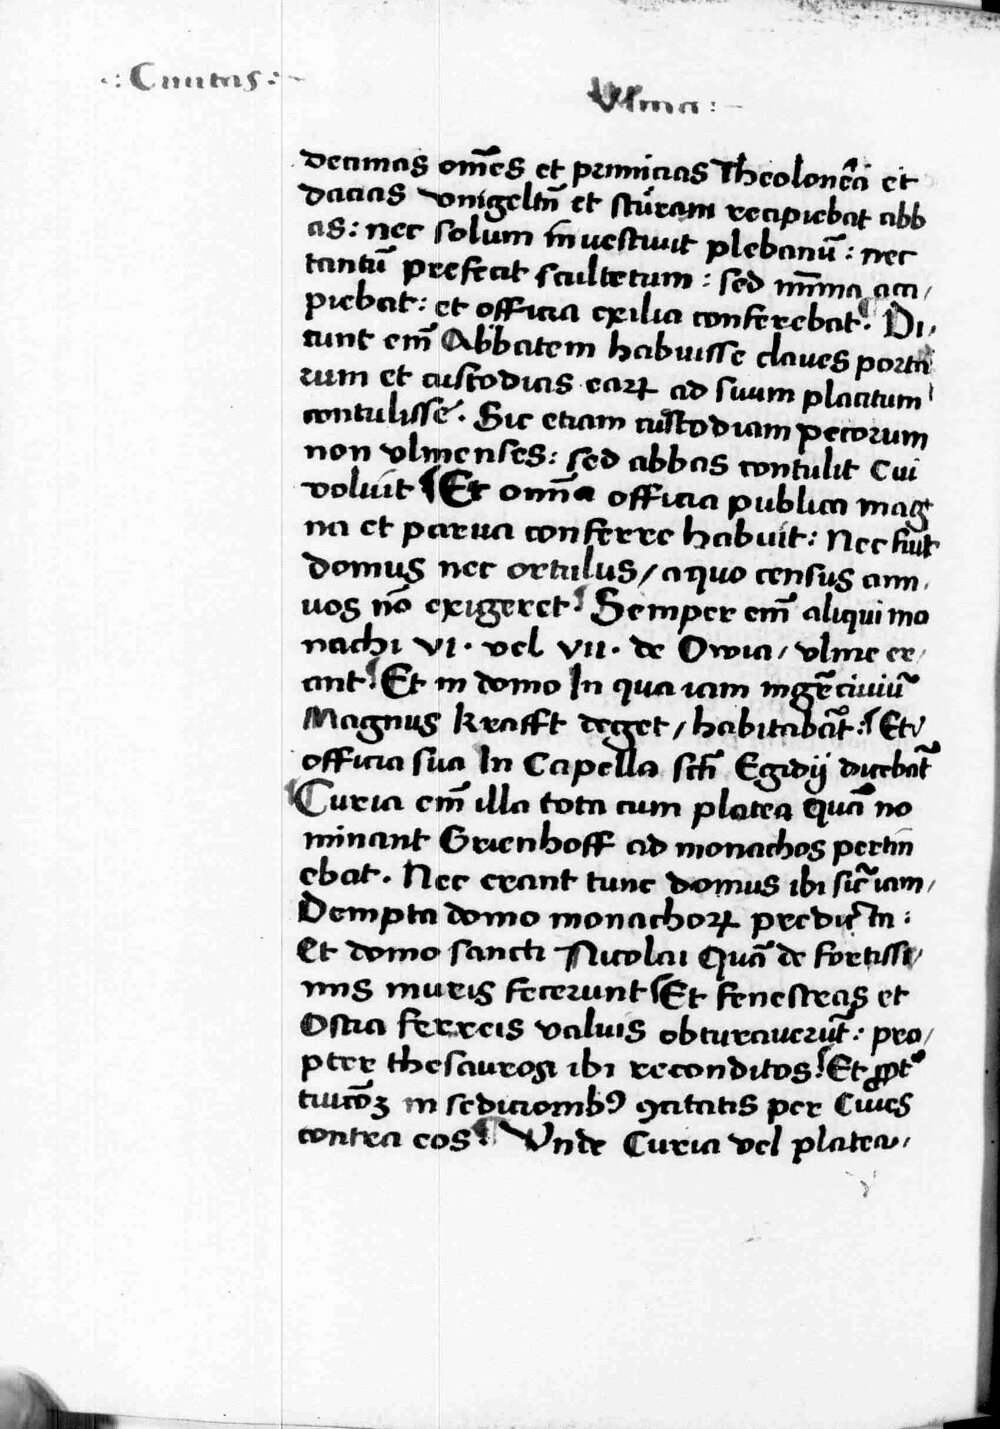 .: Ciuitas :~
Vlma :~
decimas om̄es et primicias Theolonēa et
dacias vnigeltm̄ et stůram recipiebat abb
as : nec solum īnuestiuit plebanū : nec
tantū prefecit scultetum : sed mīma acci/
piebat : et officia exilia conferebat ¶ Di/
cunt em̄ Abbatem habuisse claues porta
rum et custodias earꝝ ad suum placitum
contulisse. Sic etiam custodiam pecorum
non vlmenses : sed abbas contulit Cui
voluit ¶ Et omīa officia publica mag
na et parua conferre habuit : Nec fuit
domus nec ortulus / a quo census ann/
uos nō exigeret ¶ Semper em̄ aliqui mo
nachi VI. vel VII. de Owia / vlme er/
ant ¶ Et in domo In qua iam ingēciuiū
Magnus krafft deget / habitabāt : ¶ Et
officia sua In Capella scti Egidij dicebāt
¶ Curia em̄ illa tota cum platea quā no
minant Grienhoff ad monachos pertin
ebat. Nec erant tunc domus ibi sic̄ iam /
Dempta domo monachorꝝ predicta :
Et domo sancti Nicolai Quā de fortissi/
mis muris fecerunt ¶ Et fenestras et
Ostia ferreis valuis obturauerūt : pro/
pter thesauros ibi reconditos ¶ Et ꝓpt
tuicōꝫ in sedicionibꝰ ꝯcitatis per Ciues
contra eos ¶ Vnde Curia vel platea /